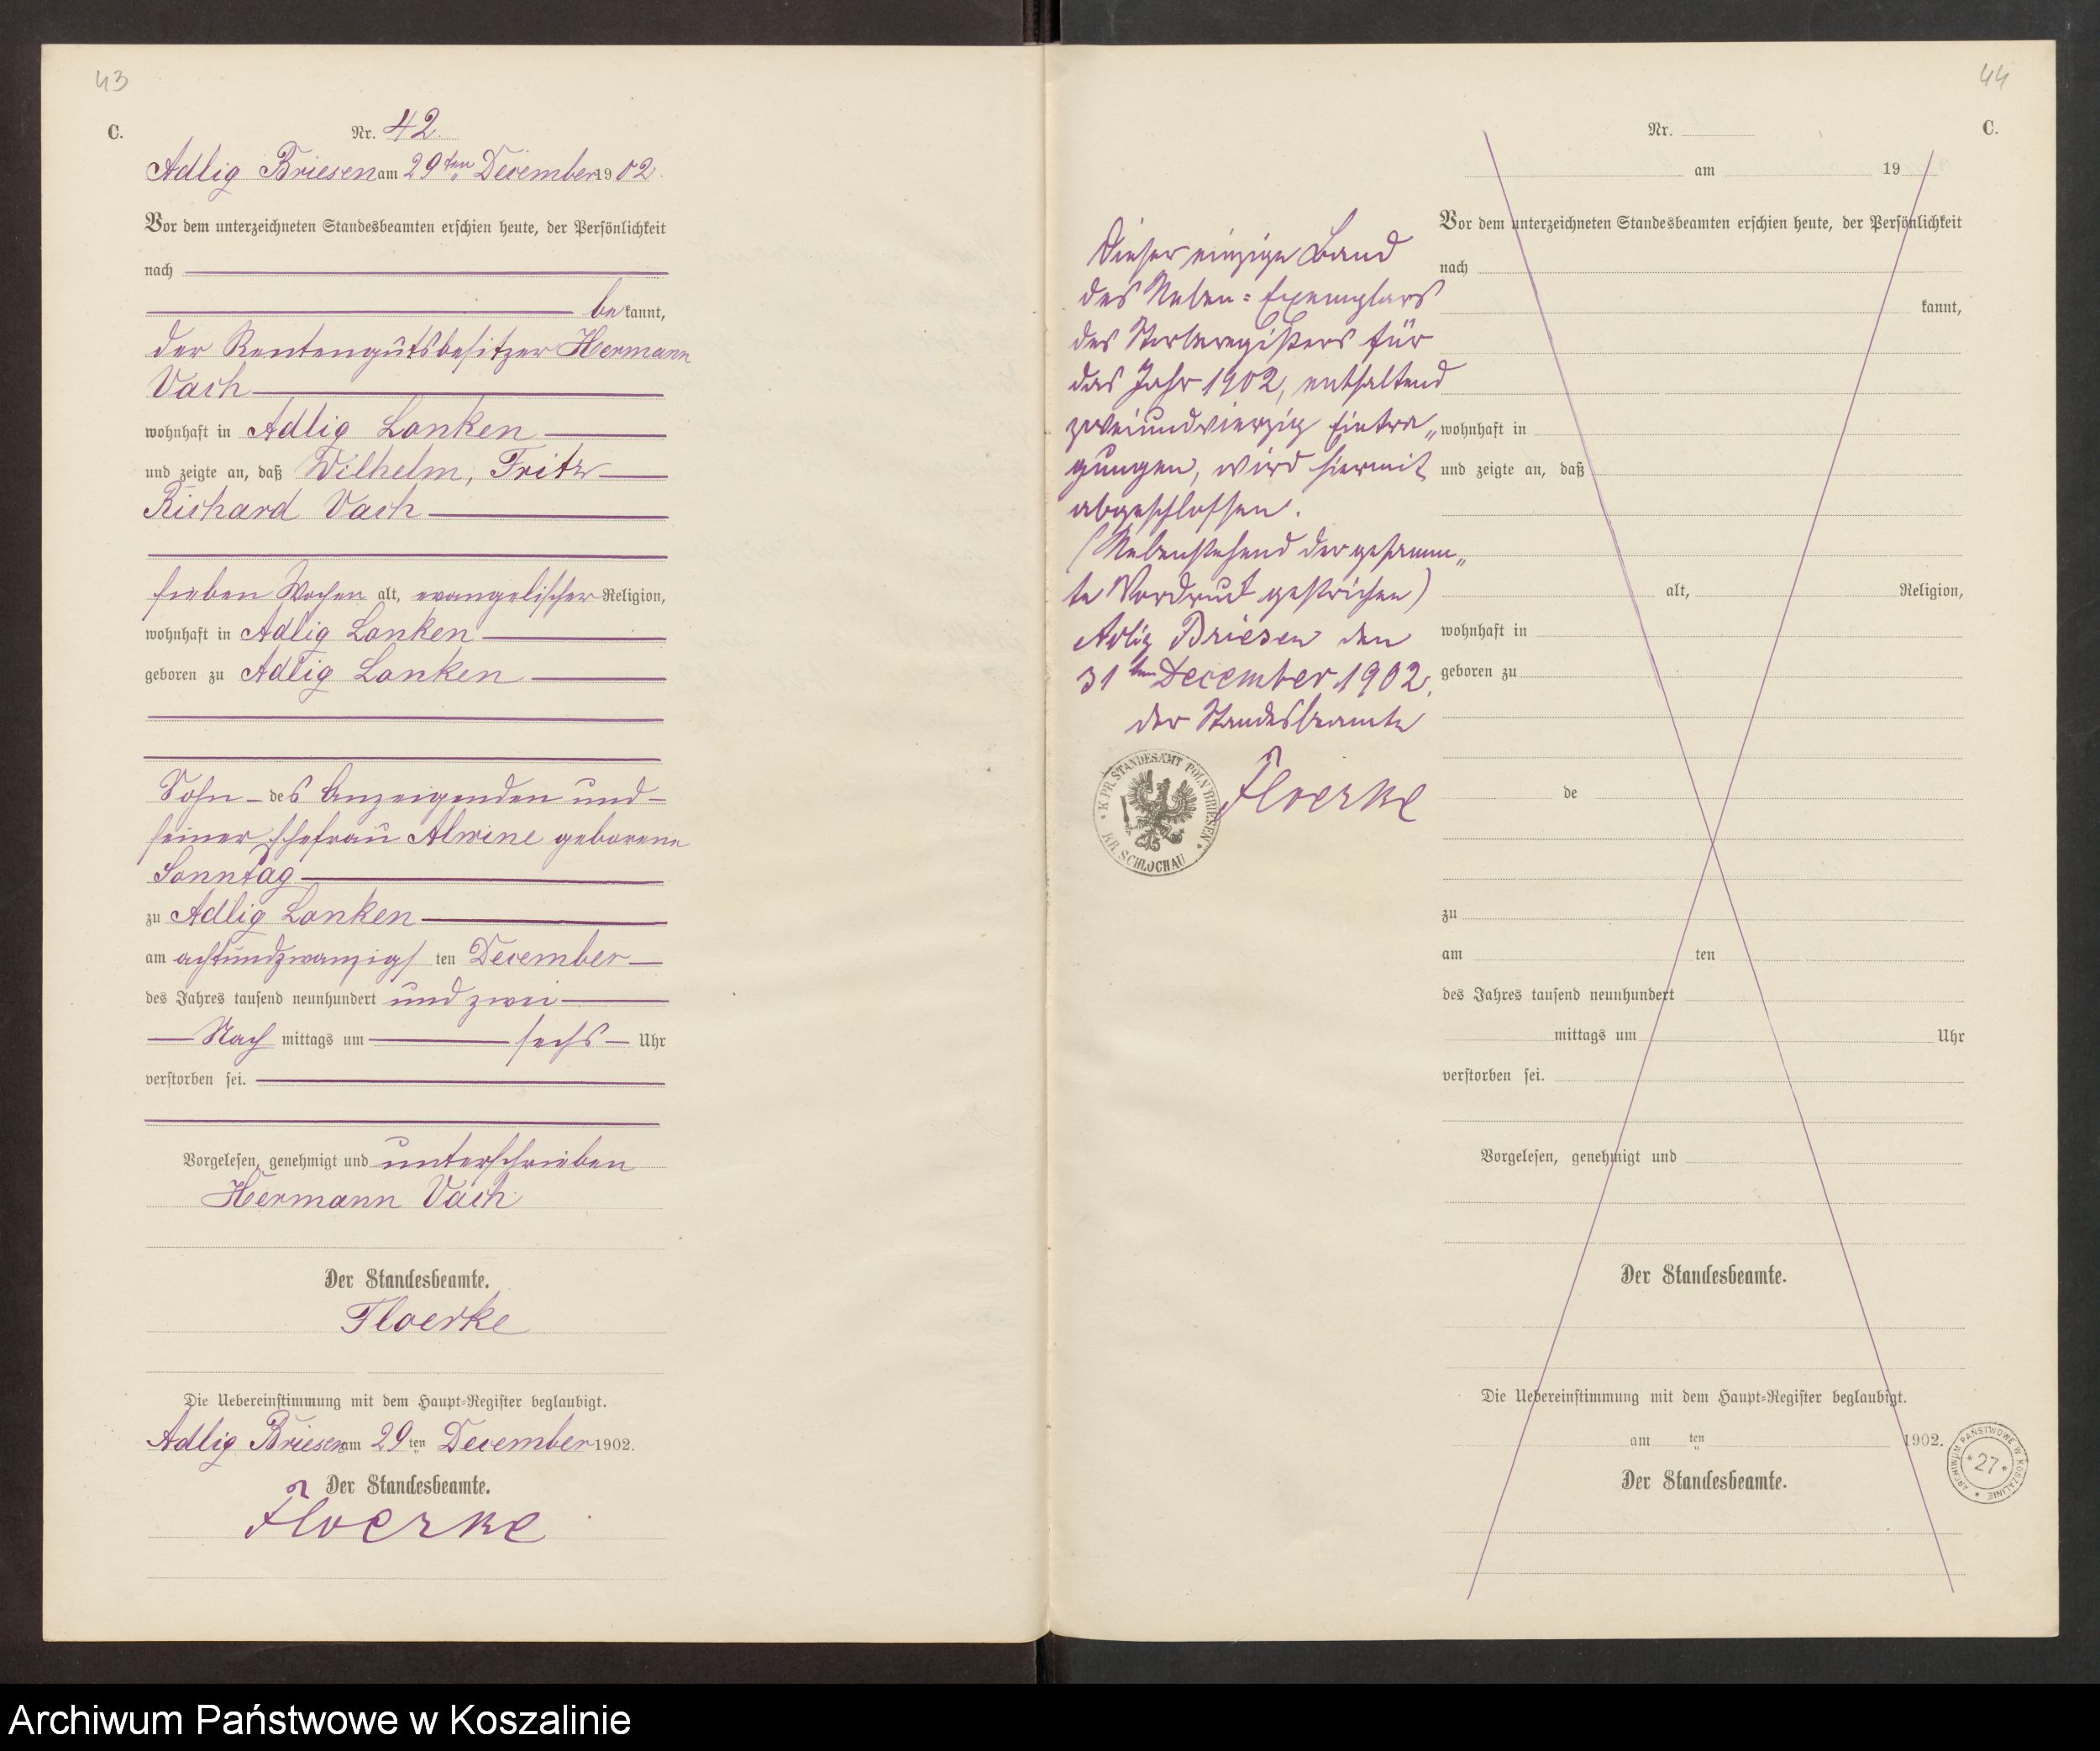 43
C.
Nr. 42.
Adlig Briesen am 29ten December 1902.
Vor dem unterzeichneten Standesbeamten erschien heute, der Persönlichkeit
nach
be kannt,
der Rentengutsbesitzer Hermann
Vach
wohnhaft in Adlig Lonken
und zeigte an, daß Wilhelm, Fritz
Richard Vach
sieben Wochen alt, evangelischer Religion,
wohnhaft in Adlig Lonken
geboren zu Adlig Lonken
Sohn des Anzeigenden und
seiner Ehefrau Alwine geborene
Sonntag
zu Adlig Lonken
am achtundzwanzigs ten December
des Jahres tausend neunhundert und zwei
Nach mittags um sechs Uhr
verstorben sei.
Vorgelesen, genehmigt und unterschrieben
Hermann Vach
Der Standesbeamte.
Floerke
Die Uebereinstimmung mit dem Haupt=Register beglaubigt.
Adlig Briesen am 29 ten December 1902.
Der Standesbeamte.
Floerke
44
C.
Dieser einzige Band
des Neben=Exemplars
des Sterberegisters für
das Jahr 1902, enthaltend
zweiundvierzig Eintra„
gungen, wird hiermit
abgeschlossen.
(Nebenstehend der gesamm„
te Vordruck gestrichen)
Adlig Briesen den
31ten December 1902.
der Standesbeamte
Floerke
K. PR. STANDESAMT POLN BRIESEN
KR. SCHLOCHAU
Nr.
am 19
Vor dem unterzeichneten Standesbeamten erschien heute, der Persönlichkeit
nach
kannt,
wohnhaft in
und zeigte an, daß
alt, Religion,
wohnhaft in
geboren zu
de
zu
am ten
des Jahres tausend neunhundert
mittags um Uhr
verstorben sei.
Vorgelesen, genehmigt und
Der Standesbeamte.
Die Uebereinstimmung mit dem Haupt=Register beglaubigt.
am ten 1902.
Der Standesbeamte.
ARCHIWUM PAŃSTWOWE W KOSZALINIE
* 27 *
Archiwum Państwowe w Koszalinie